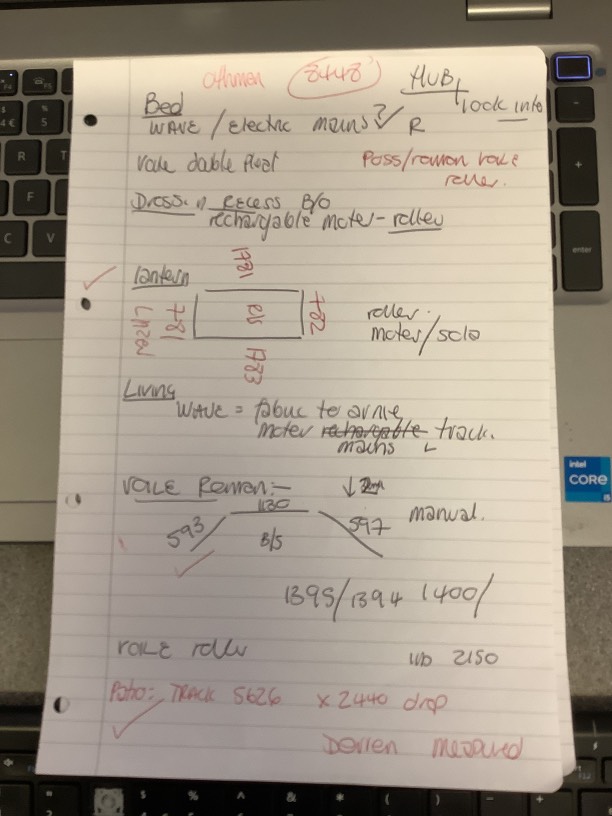 Othman 8448 HUB
Bed Lock into
WAVE / Electric mains? R
voile double float Poss/roman voile
roller.
Dress. Recess B/O
rechargable moter - roller
1781
Lantern
781 B/S 782 roller.
moter/solo
1783
Living
WAVE = fabric to arrive
moter rechargable track.
mains L
VOILE Roman:-
1130
593 597 manual.
B/S
1395/1394 1400/
VOILE roller
WD 2150
Patio: TRACK 5626 x 2440 drop
Darren measured
intel
CORE
i5
enter